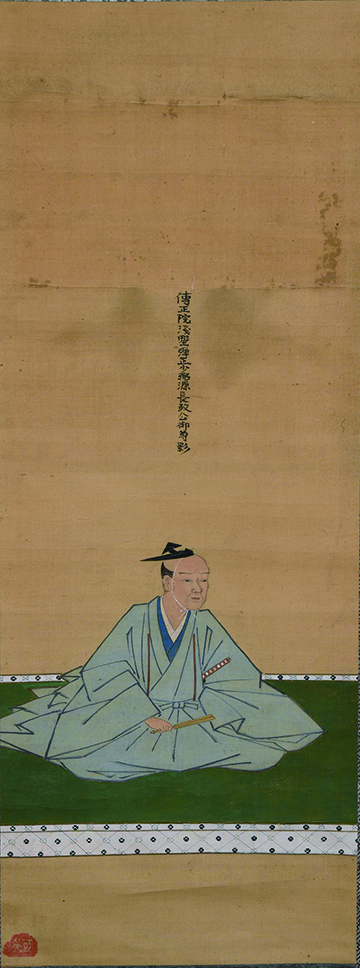 傳正院浅野彈正少弼源長政公御尊影